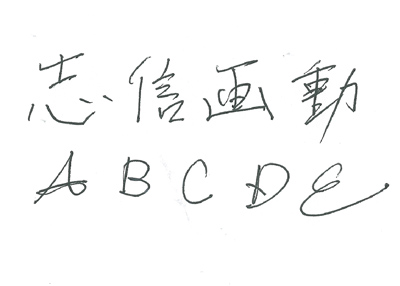 志信画動
ABCDE